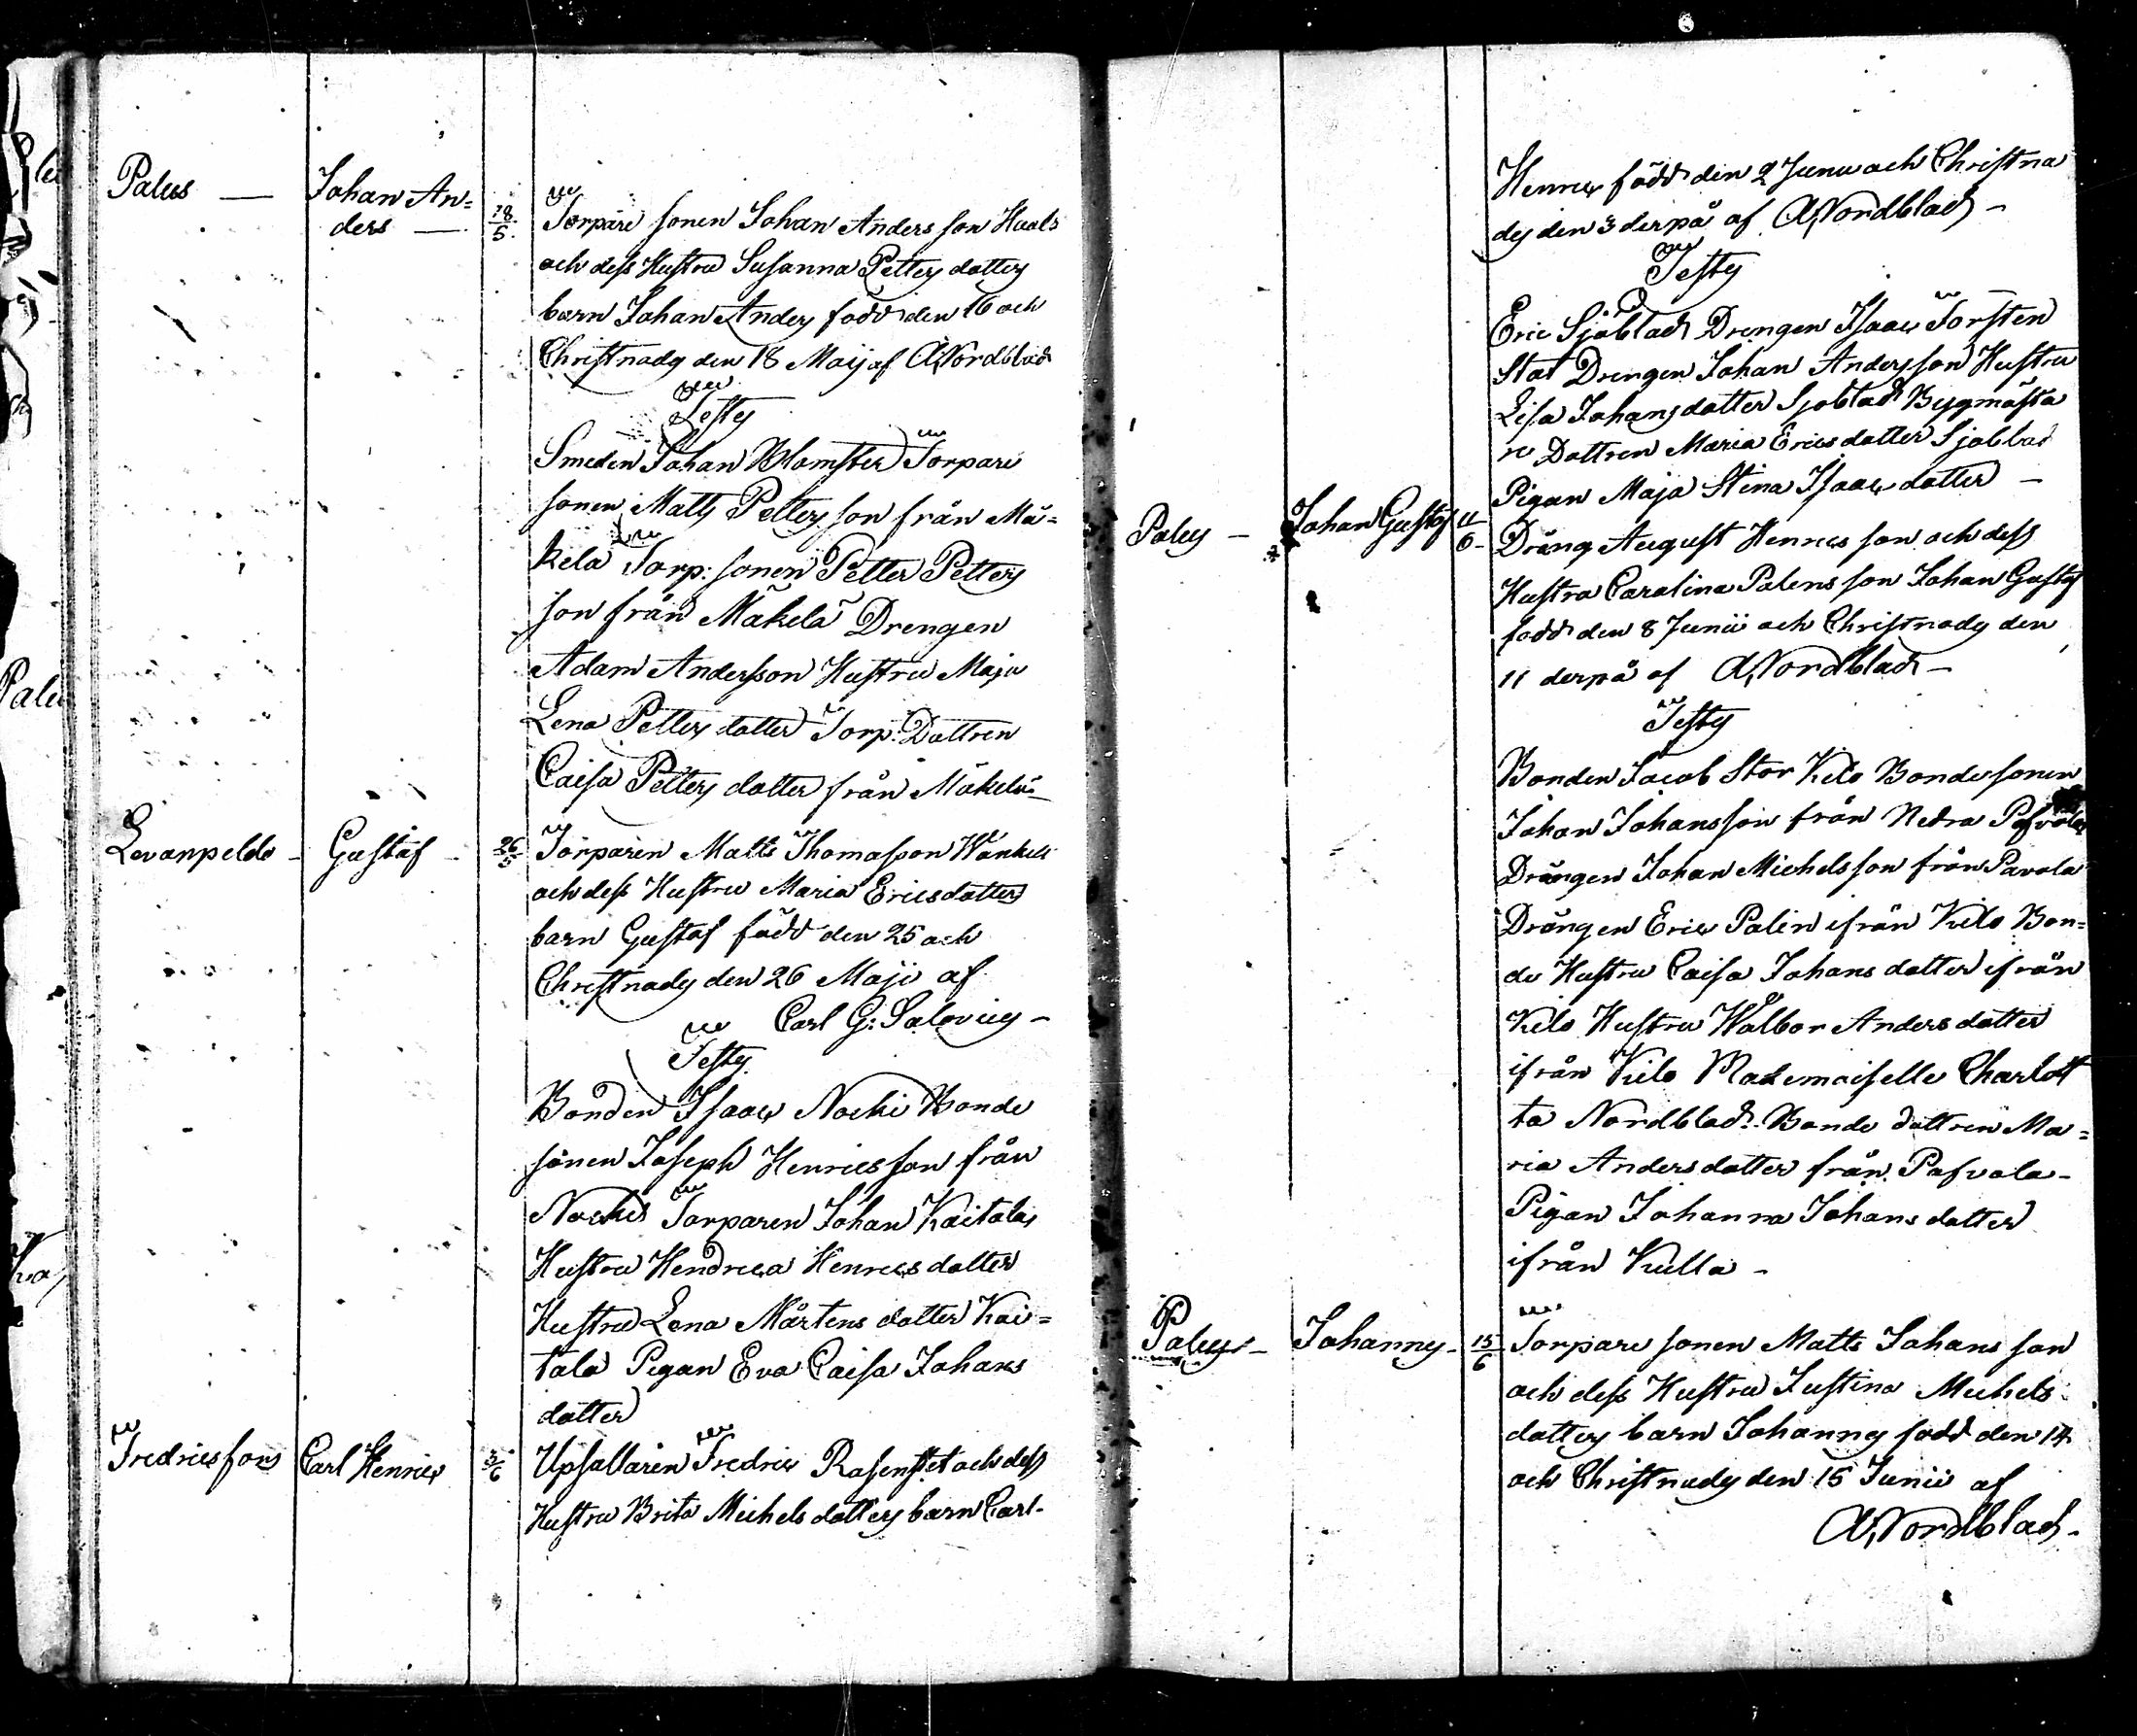 Palus — Johan An=
ders — 18/5 Torpare sonen Johan Anders son Haals
och dess Hustru Susanna Petters dotters
barn Johan Anders född den 16 och
Christnades den 18 Maij af A,Nordblad
Testes
Smeden Johan Blomster Torpare
sonen Matts Petters son från Mä=
kelä Torp: sonen Petter Petters
son från Mäkelä Drengen
Adam Andersson Hustru Maja
Lena Petters dotter Torp: Dottren
Caisa Petters dotter från Mäkelä —
Levanpeldo — Gustaf — 26/5 Torparen Matts Thomasson
och dess Hustru Maria Ericsdotters
barn Gustaf född den 25 och
Christnades den 26 Maji af
Carl G: Salovius —
Testes
Bonden Isaac Nocki Bonde
sonen Joseph Henricsson från
Nockis Torparen Johan Kaitalas
Hustru Hendrica Henrics dotter
Hustru Lena Mårtens dotter Kai=
tala Pigan Eva Caisa Johans
dotter
Fredricsfors Carl Henric 3/6 Upsallaren Fredric Rosenqvist och dess
Hustru Brita Michels dotters barn Carl
Henric född den 2 Junii och Christna
des den 3 derpå af A,Nordblad —
Testes
Eric Sjöblad Drengen Isaac Torsten
Stat Drengen Johan Andersson Hustru
Lisa Johansdotter Sjöblad Bygmästa
re Dottren Maria Ericsdotter Sjöblad
Pigan Maja Stina Isaacs dotter —
Palus — Johan Gustaf 11/6 Dräng August Henrics son och dess
Hustru Carolina Palens son Johan Gustaf
född den 8 Junii och Christnades den
11 derpå af A,Nordblad —
Testes
Bonden Jacob Stor Kilo Bondesonen
Johan Johansson från Nedra Pafvola
Drängen Johan Michelsson från Pavola
Drängen Eric Palin ifrån Kilo Bon=
de Hustru Caisa Johans dotter ifrån
Kilo Hustru Walbor Anders dotter
ifrån Kilo Mademoiselle Charlot
ta Nordblad. Bonde dottren Ma=
ria Andersdotter från Pafvola —
Pigan Johanna Johans dotter
ifrån Kulla —
Palus — Johannes — 15/6 Torpare sonen Matts Johans son
och dess Hustru Justina Michels
dotters barn Johannes född den 14
och Christnades den 15 Junii af
A,Nordblad —